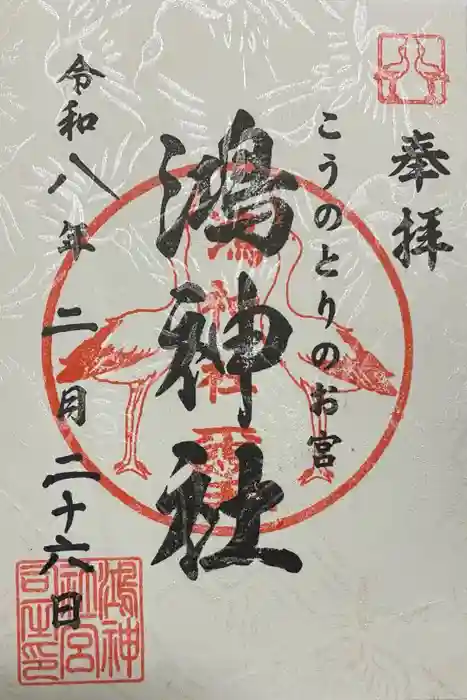 奉拝
こうのとりのお宮
鴻神社
令和八年 二月 二十六日
鴻神
社宮
司之印